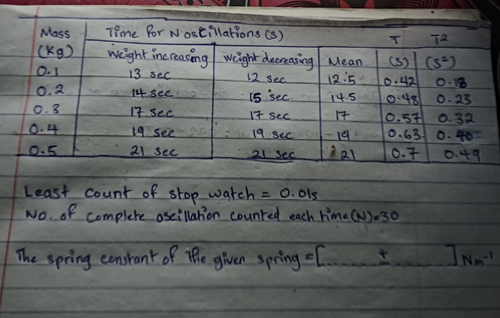 Mass Time for N oscillations (s) T T2
(kg) Weight increasing weight decreasing Mean (s) (s²)
0.1 13 sec 12 sec 12.5 0.42 0.18
0.2 14 sec 15 sec 14.5 0.48 0.23
0.3 17 sec 17 sec 17 0.57 0.32
0.4 19 sec 19 sec 19 0.63 0.40
0.5 21 sec 21 sec 21 0.7 0.49
Least count of stop watch = 0.01s
No. of complete oscillation counted each time (N)=30
The spring constant of the given spring = [ ...... ± ...... ] Nm⁻¹